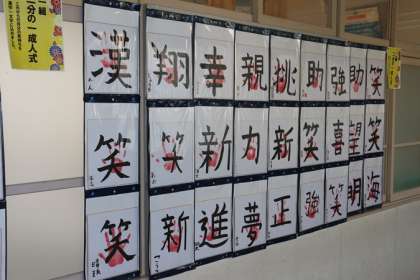 一組
二分の一成人式
漢 翔 幸 親 挑 助 強 助 笑
笑 笑 新 力 新 笑 喜 望 笑
笑 新 進 夢 正 強 笑 明 海